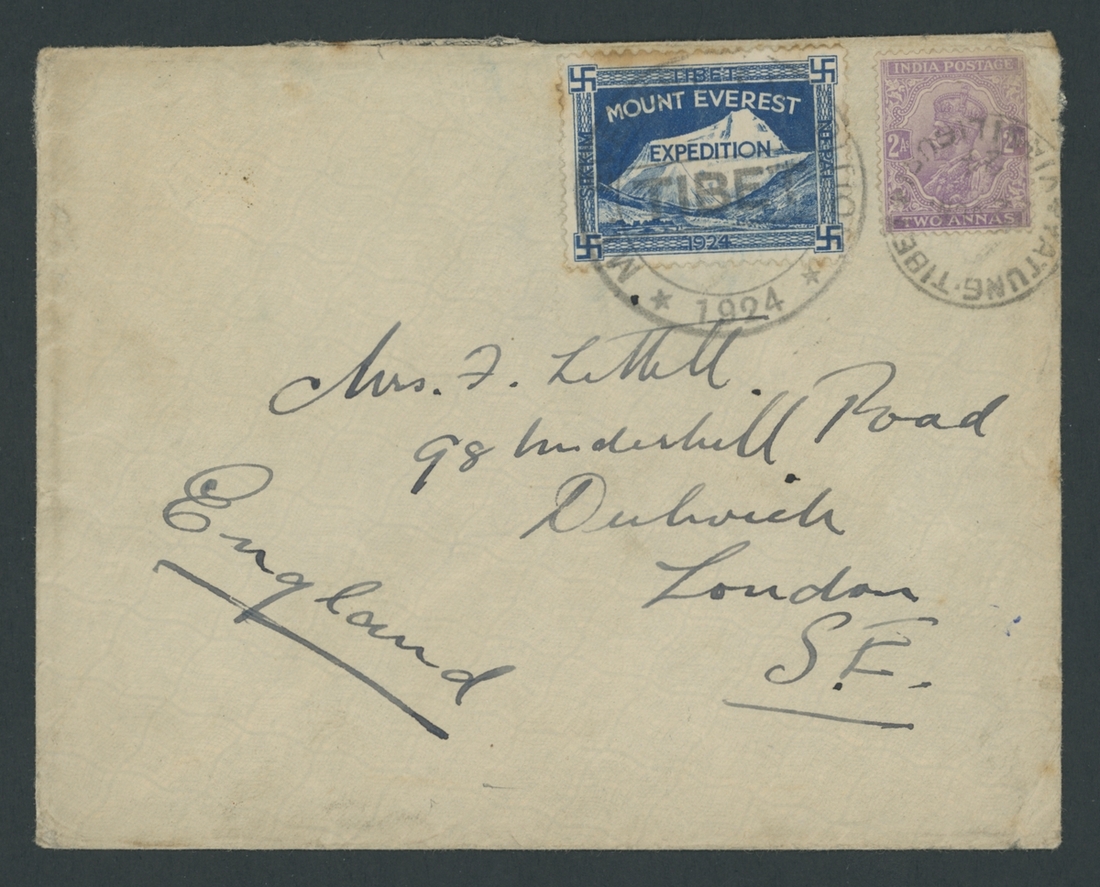 TIBET
MOUNT EVEREST
EXPEDITION
SIKKIM
NEPAL
1924
TIBET
★ 1924 ★
INDIA POSTAGE
2As
TWO ANNAS
YATUNG·TIBE
Mrs. F.
98 Underhill Road
Dulwich
London
S.E.
England